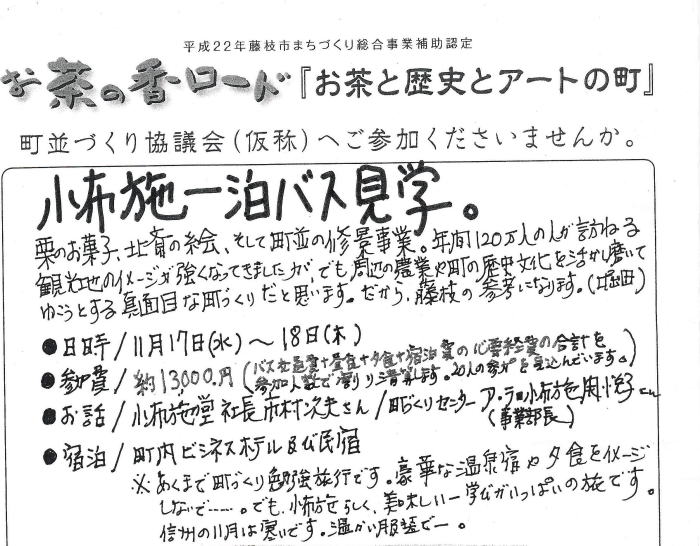 平成22年藤枝市まちづくり総合事業補助認定
お茶の香ロード『お茶と歴史とアートの町』
町並づくり協議会(仮称)へご参加くださいませんか。
小布施一泊バス見学。
栗のお菓子、北斎の絵、そして町並の修景事業。年間120万人の人が訪ねる
観光地のイメージが強くなってきましたが、でも周辺の農業や町の歴史文化を活かし磨いて
ゆこうとする真面目な町づくりだと思います。だから、藤枝の参考になります。(堀田)
●日時/11月17日(水)〜18日(木)
●参加費/約13,000円(バス往復費+昼食+夕食+宿泊費の必要経費の合計を
参加人数で割り清算します。20人の参加を見込んでいます。)
●お話/小布施堂社長市村次夫さん/町づくりセンターア・ラ・小布施 さん
(事業部長)
●宿泊/町内ビジネスホテル及び民宿
※あくまで町づくり勉強旅行です。豪華な温泉宿や夕食をイメージ
しないで……。でも、小布施らしく、美味しい一学びがいっぱいの旅です。
信州の11月は寒いです。温かい服装でー。